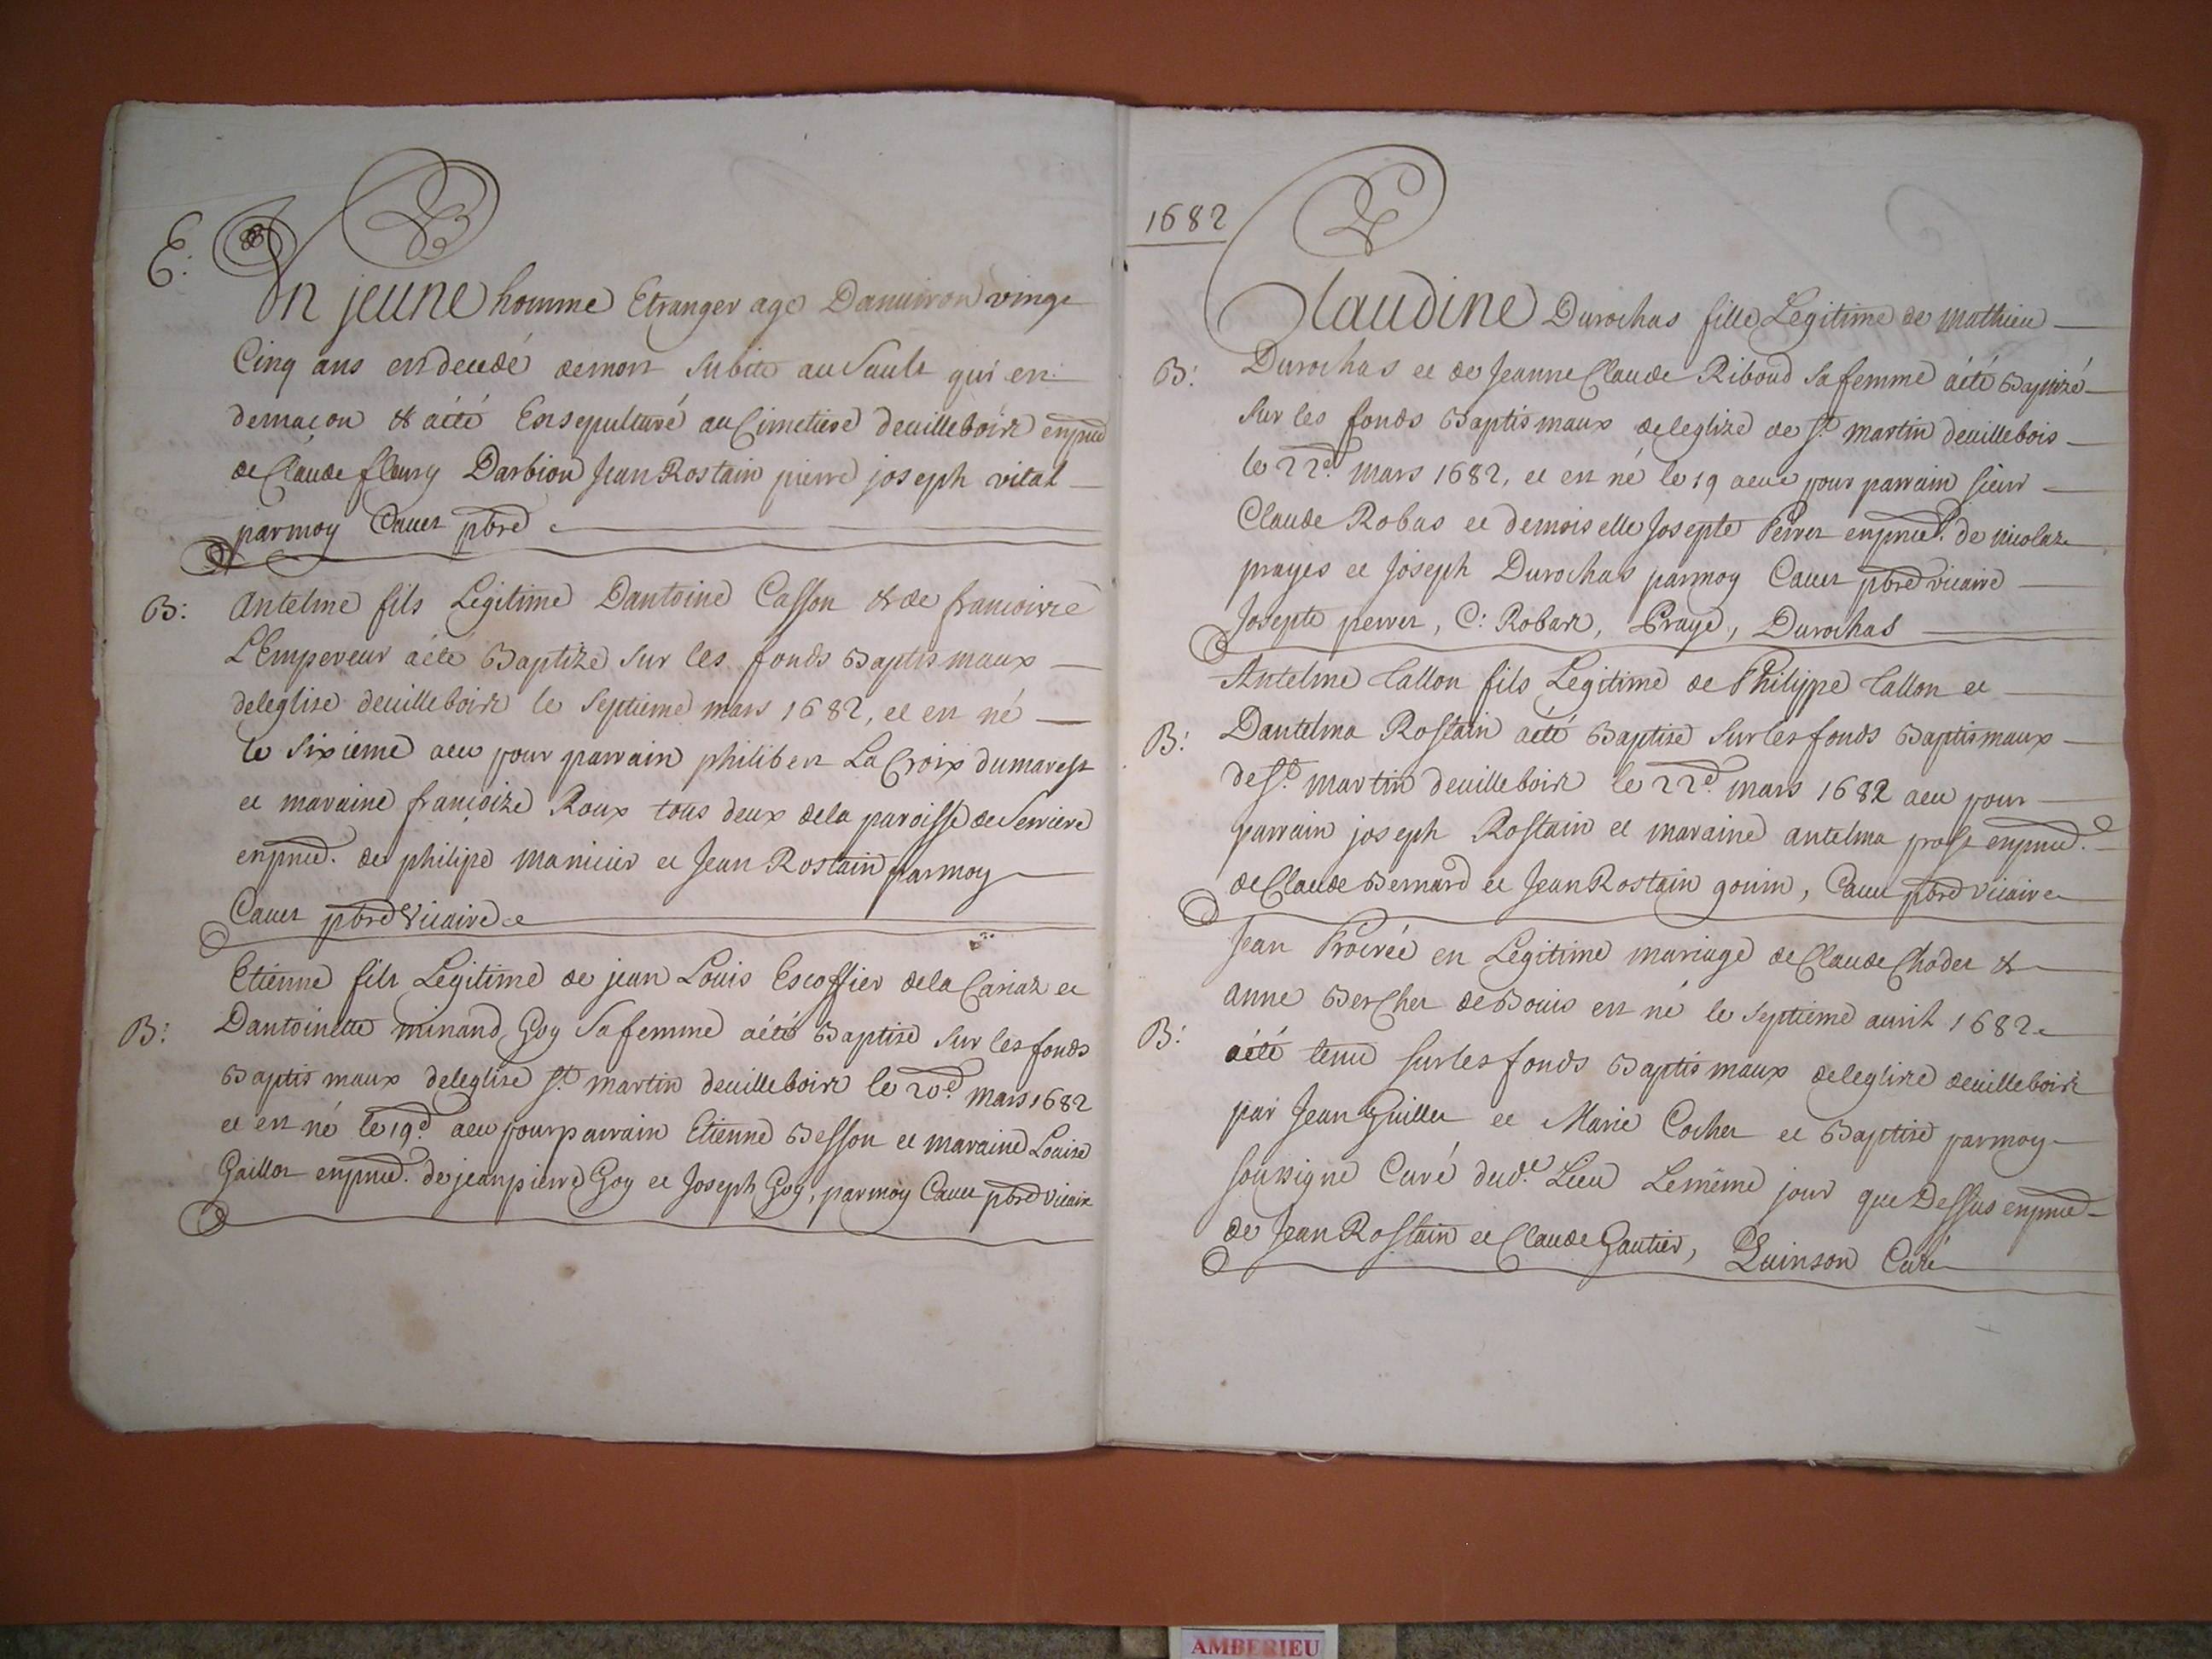 E:
Un jeune homme Etranger agé Danuiron vingt
Cinq ans est decedé demort subite au Sault qui est
demaçon & aété Ensepulturé au Cimetiere deuilleboire enpnce
de Claude fleury Darbion Jean Rostain pierre joseph vital
parmoy Cauet pbre
B: Antelme fils Legitime Dantoine Casson & de francoize
L'Empereur aété Baptizé sur les fonds Baptismaux
deleglise deuilleboire le Septieme mars 1682, et est né
le sixieme aeu pour parrain philibert La Croix dumarest
et maraine françoize Roux tous deux dela paroisse de Serriere
enpnce. de philipe manicier et Jean Rostain parmoy
Cauet pbre Vicaire
Etienne fils Legitime de jean Louis Escoffier dela Cariaz et
B: Dantoinette minand Goy sa femme aété Baptisé sur les fonds
Baptismaux deleglise St. martin deuilleboire le 20e. mars 1682
et est né le 19e. aeu pour parrain Etienne Besson et maraine Louise
Gaillot enpnce. de jeanpierre Goy et Joseph Goy, parmoy Cauet pbre Vicaire
1682
Claudine Durochas fille Legitime de Mathieu
B: Durochas et de Jeanne Claude Riboud sa femme aété Baptizé
sur les fonds Baptismaux deleglize de St. martin deuillebois
le 22e. mars 1682, et est né le 19 aeue pour parrain sieur
Claude Robas et demoiselle Josepte Perret enpnce. de nicolaz
prayes et Joseph Durochas parmoy Cauet pbre vicaire
Josepte perret, C: Robare, Praye, Durochas
Antelme Callon fils Legitime de Philippe Callon et
B: Dantelma Rostain aété Baptisé sur les fonds Baptismaux
de St. martin deuilleboire le 22e. mars 1682 aeu pour
parrain joseph Rostain et maraine antelma prost enpnce.
de Claude Bernard et Jean Rostain gonin, Cauet pbre Vicaire
Jean Proirée en Legitime mariage de Claude Chodet &
anne Bercher de Bouis est né le Septieme auril 1682
B: aété tenu sur les fonds Baptismaux deleglize deuilleboire
par Jean Guillet et Marie Cochet et Baptisé parmoy
sousigné Curé dud.t Lieu Lemême jour que Dessus enpnce
de Jean Rostain et Claude Gautier, Quinson Curé
AMBERIEU